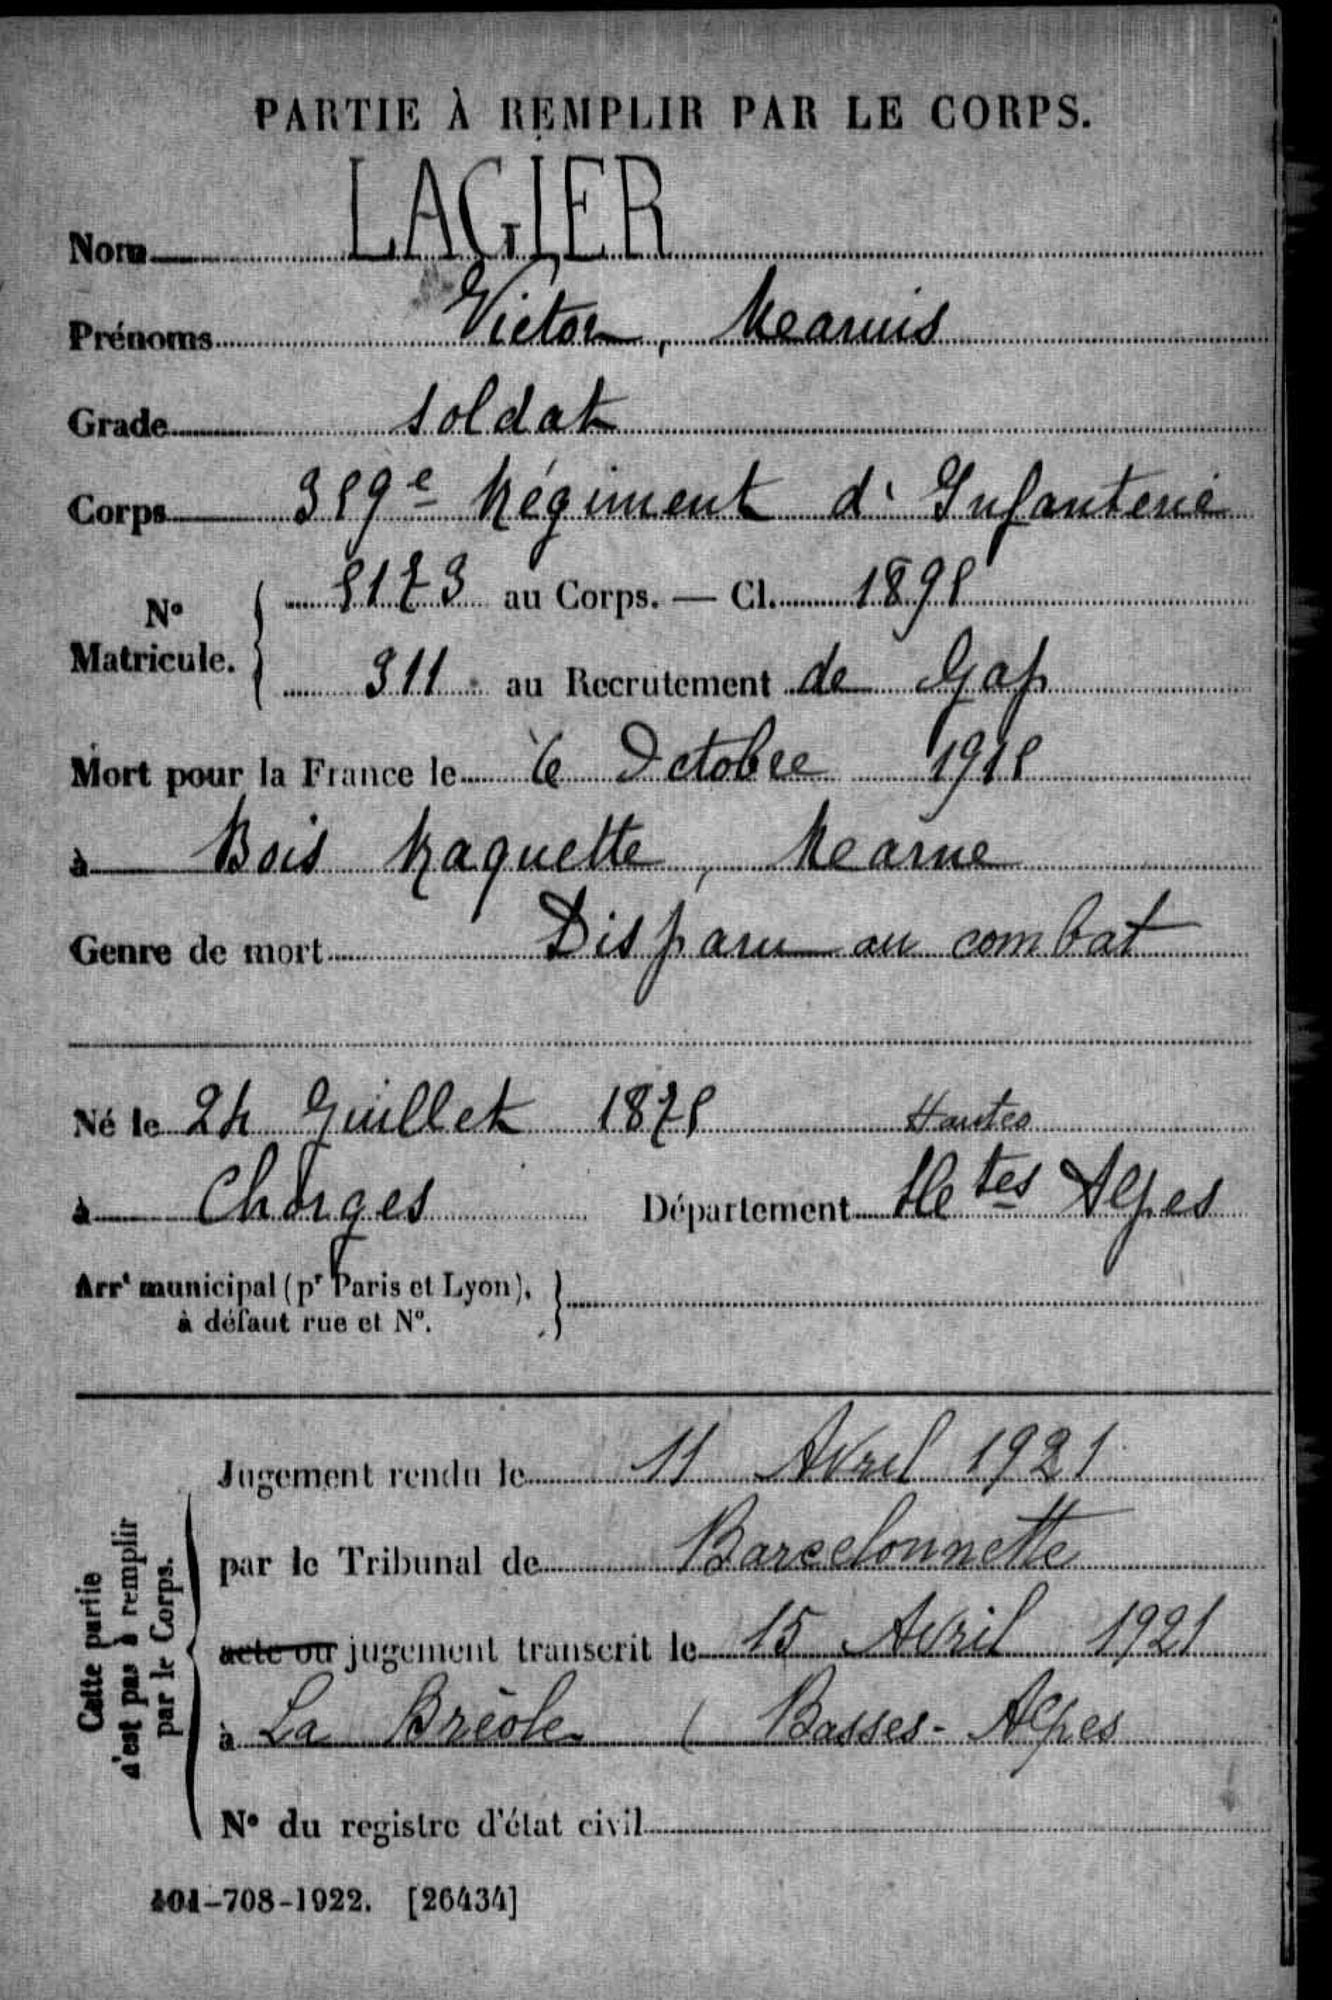 PARTIE À REMPLIR PAR LE CORPS.
Nom LAGIER
Prénoms Victor, Marius
Grade soldat
Corps 359e Régiment d'Infanterie
N° Matricule. { 5173 au Corps. — Cl. 1895
311 au Recrutement de Gap
Mort pour la France le 6 Octobre 1915
à Bois Raquette, Marne
Genre de mort Disparu au combat
Né le 24 Juillet 1875 Hautes
à Chorges Département Htes Alpes
Arrt municipal (pr Paris et Lyon), à défaut rue et N°. }
Cette partie n'est pas à remplir par le Corps.
Jugement rendu le 11 Avril 1921
par le Tribunal de Barcelonnette
acte ou jugement transcrit le 15 Avril 1921
à La Bréole ( Basses-Alpes
N° du registre d'état civil
101-708-1922. [26434]